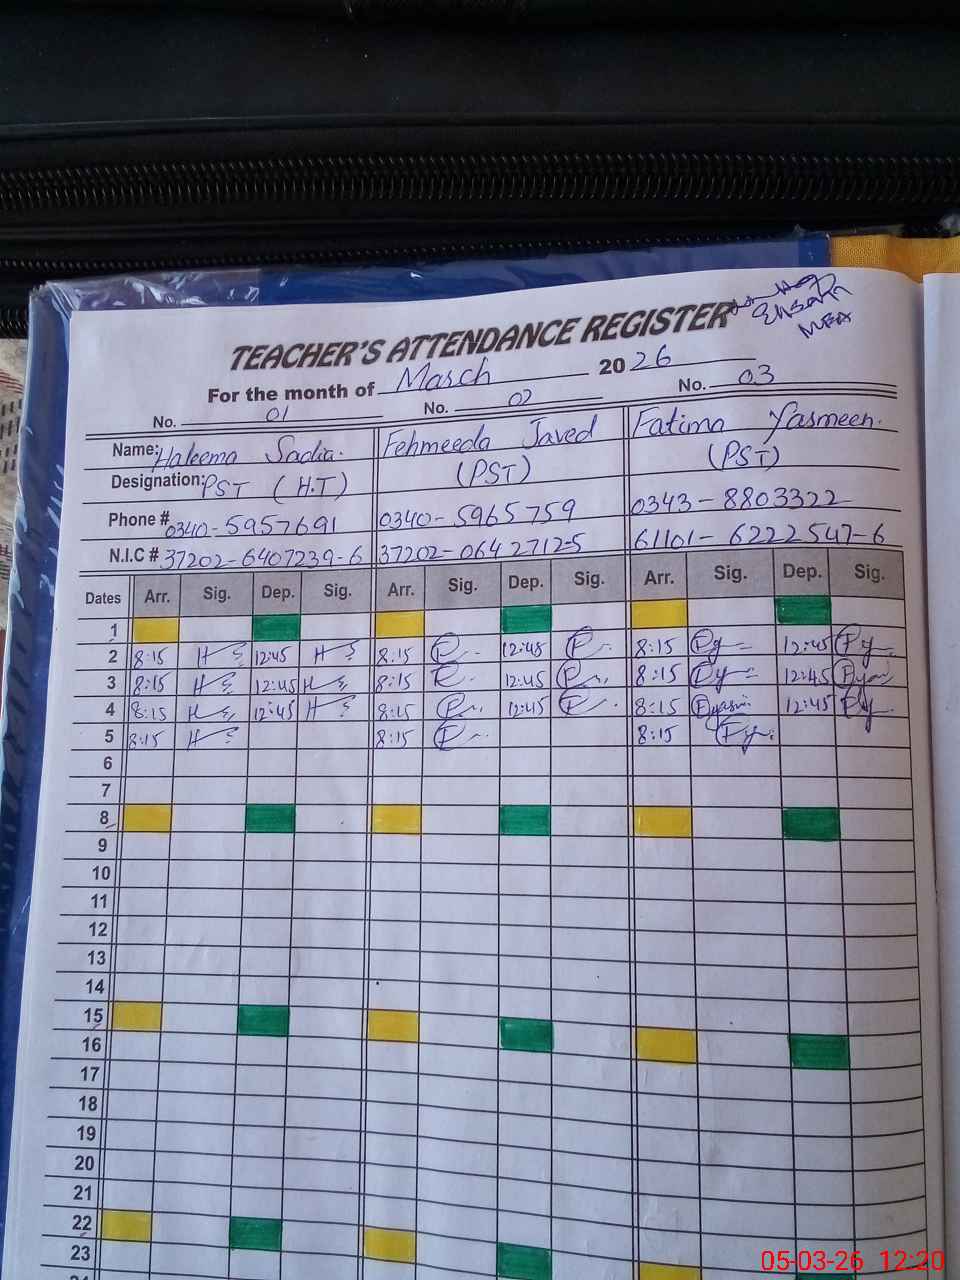 Ehsan
MEA
TEACHER'S ATTENDANCE REGISTER
For the month of March 2026
No. 01 No. 02 No. 03
Name: Haleema Sadia. Fehmeeda Javed Fatima Yasmeen.
Designation: PST (H.T) (PST) (PST)
Phone # 0340-5957691 0340-5965759 0343-8803322
N.I.C # 37202-6407239-6 37202-0642712-5 61101-6222547-6
Dates Arr. Sig. Dep. Sig. Arr. Sig. Dep. Sig. Arr. Sig. Dep. Sig.
1
2 8:15 12:45 8:15 12:45 8:15 12:45
3 8:15 12:45 8:15 12:45 8:15 12:45
4 8:15 12:45 8:15 12:45 8:15 12:45
5 8:15 8:15 8:15
6
7
8
9
10
11
12
13
14
15
16
17
18
19
20
21
22
23
05-03-26 12:20